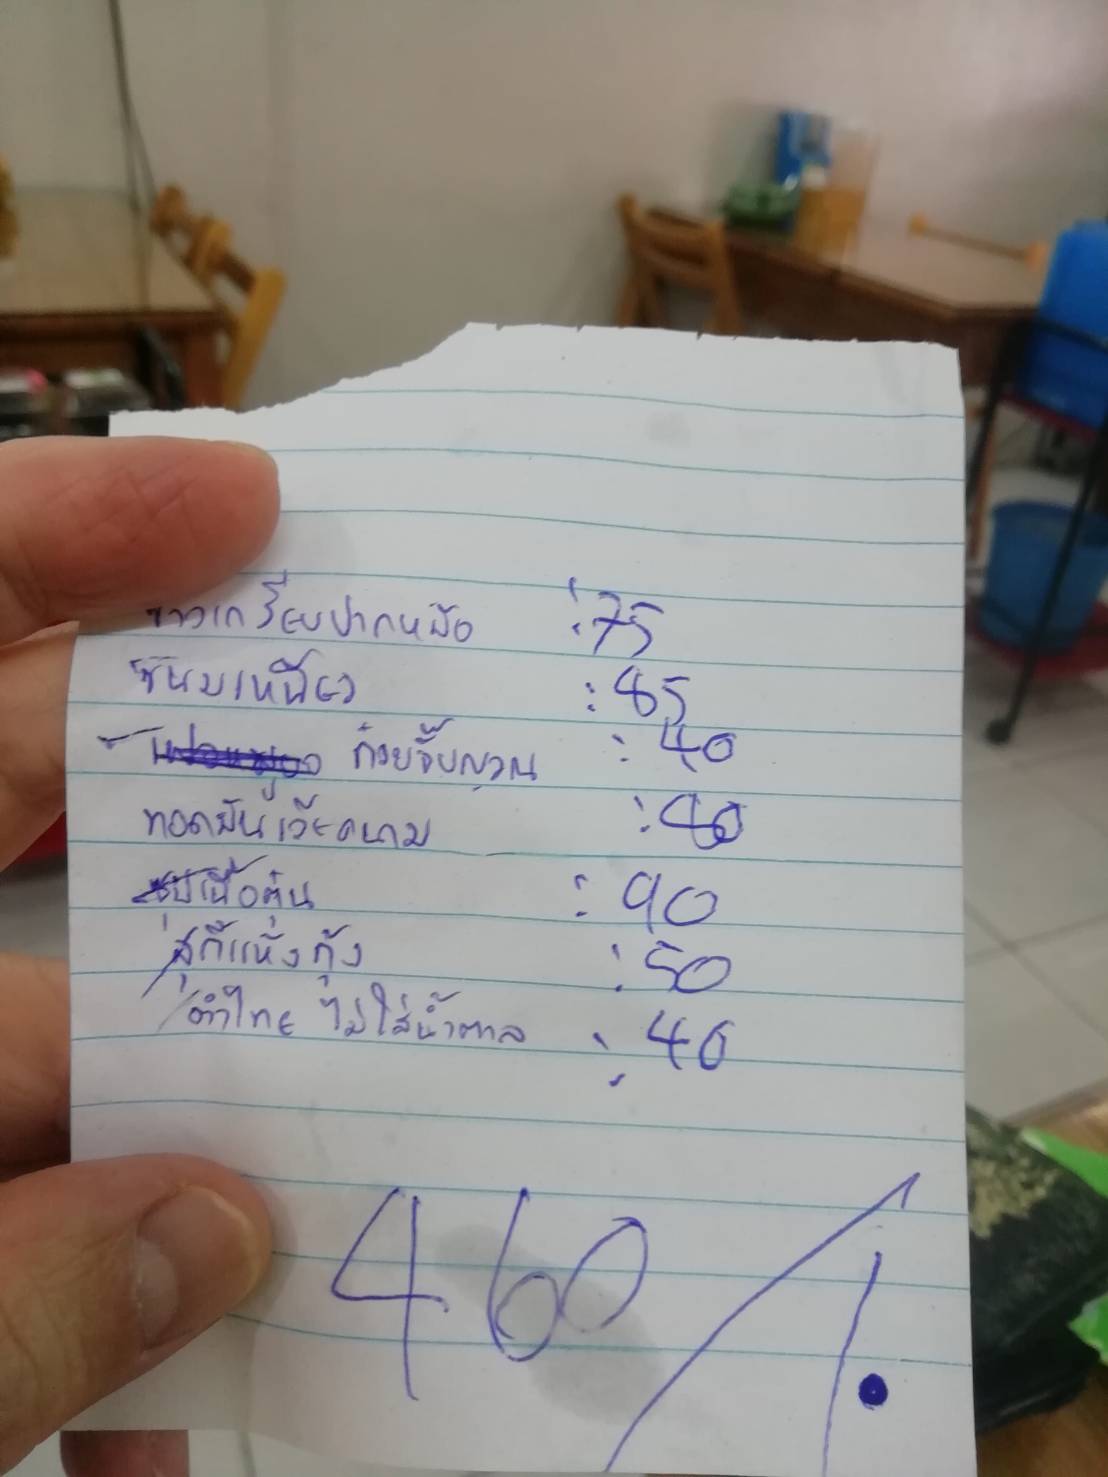 ข้าวเกรียบปากหม้อ : 75
ขนมเหนียว : 85
ก๋วยจั๊บญวน : 40
ทอดมันเวียดนาม : 40
ซุปเนื้อตุ๋น : 90
สุกี้แห้งกุ้ง : 50
ตำไทย ไม่ใส่น้ำตาล : 40
460